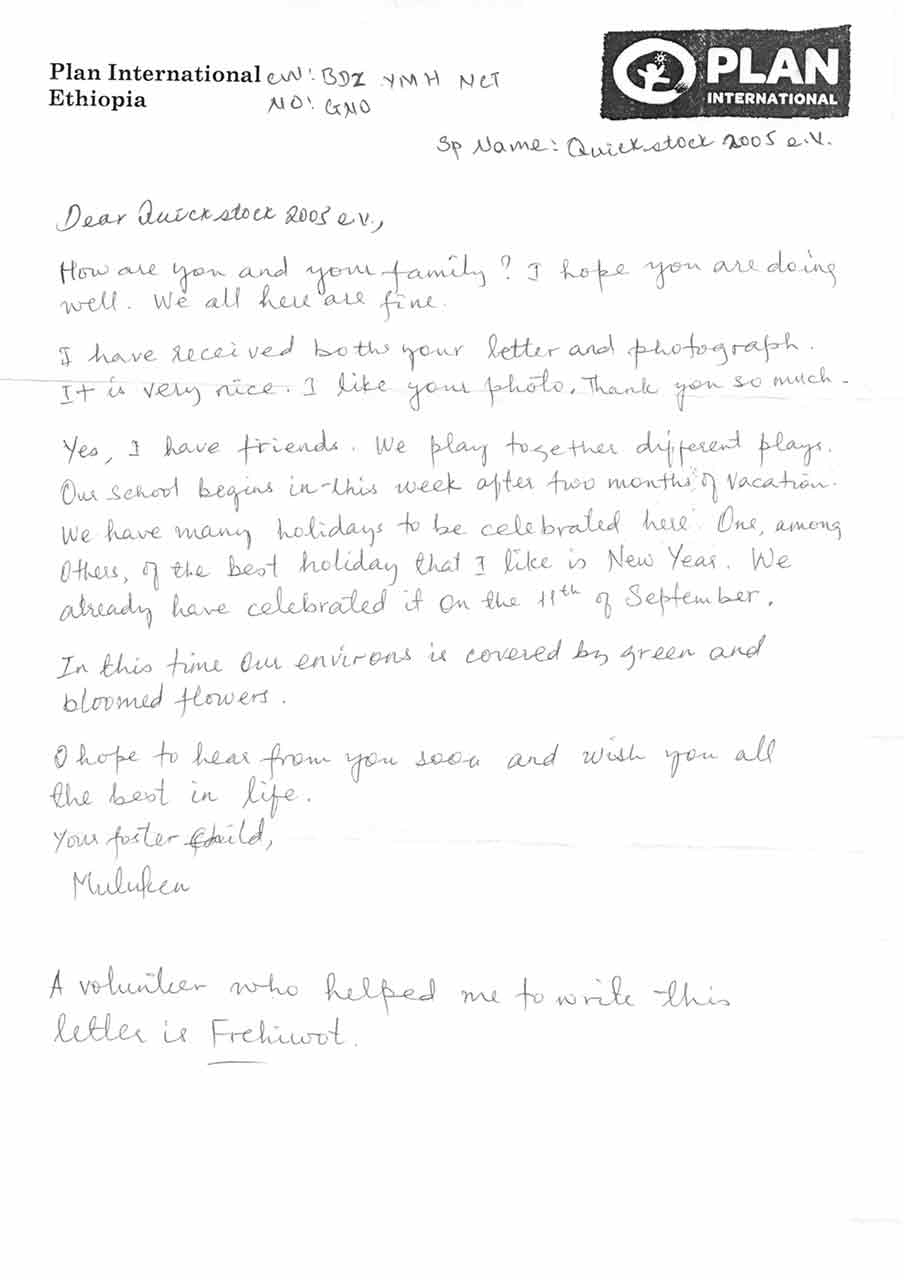 Plan International CW: BDZ YMH NCT
Ethiopia NO: GNO
PLAN
INTERNATIONAL
Sp Name: Quickstock 2005 e.V.
Dear Quickstock 2005 e.V.,
How are you and your family? I hope you are doing
well. We all here are fine.
I have received boths your letter and photograph.
It is very nice. I like your photo. Thank you so much.
Yes, I have friends. We play together different plays.
Our school begins in this week after two months of vacation.
We have many holidays to be celebrated here. One, among
others, of the best holiday that I like is New Year. We
already have celebrated it on the 11th of September.
In this time our environs is covered by green and
bloomed flowers.
I hope to hear from you soon and wish you all
the best in life.
Your foster child,
Muluken
A volunteer who helped me to write this
letter is Frehiwot.